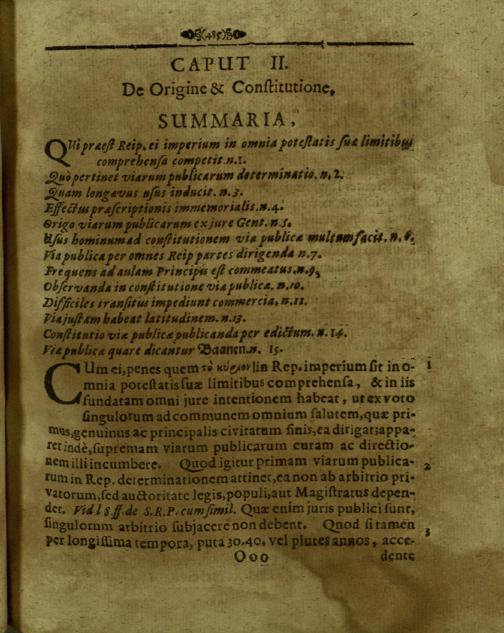 (485)
CAPUT II.
De Origine & Constitutione.
SUMMARIA.
QUi præest Reip. ei imperium in omnia potestatis suæ limitibus
comprehensa competit. n. 1.
Quò pertinet viarum publicarum determinatio. n. 2.
Quam longævus usus inducit. n. 3.
Effectus præscriptionis immemorialis. n. 4.
Origo viarum publicarum ex jure Gent. n. 5.
Usus hominum ad constitutionem viæ publicæ multum facit. n. 6.
Via publica per omnes Reip partes dirigenda n. 7.
Frequens ad aulam Principis est commeatus. n. 9.
Observanda in constitutione viæ publicæ. n. 10.
Difficiles transitus impediunt commercia. n. 11.
Via justam habeat latitudinem. n. 13.
Constitutio viæ publicæ publicanda per edictum. n. 14.
Via publicæ quare dicantur Baanen. n. 15.
CUm ei, penes quem τὸ κύριον in Rep. imperium sit in o- 1
mnia potestatis suæ limitibus comprehensa, & in iis
fundatam omni jure intentionem habeat, ut ex voto
singulorum ad communem omnium salutem, quæ pri-
mus, genuinus ac principalis civitatum finis, ea dirigat: appa-
ret indè, supremam viarum publicarum curam ac directio-
nem illi incumbere. Quod igitur primam viarum publica- 2
rum in Rep. determinationem attinet, ea non ab arbitrio pri-
vatorum, sed auctoritate legis, populi, aut Magistratus depen-
det. Vid l § ff. de S. R. P. cum simil. Quæ enim juris publici sunt,
singulorum arbitrio subjacere non debent. Quod si tamen 3
per longissima tempora, puta 30. 40. vel plures annos, acce-
Ooo dente